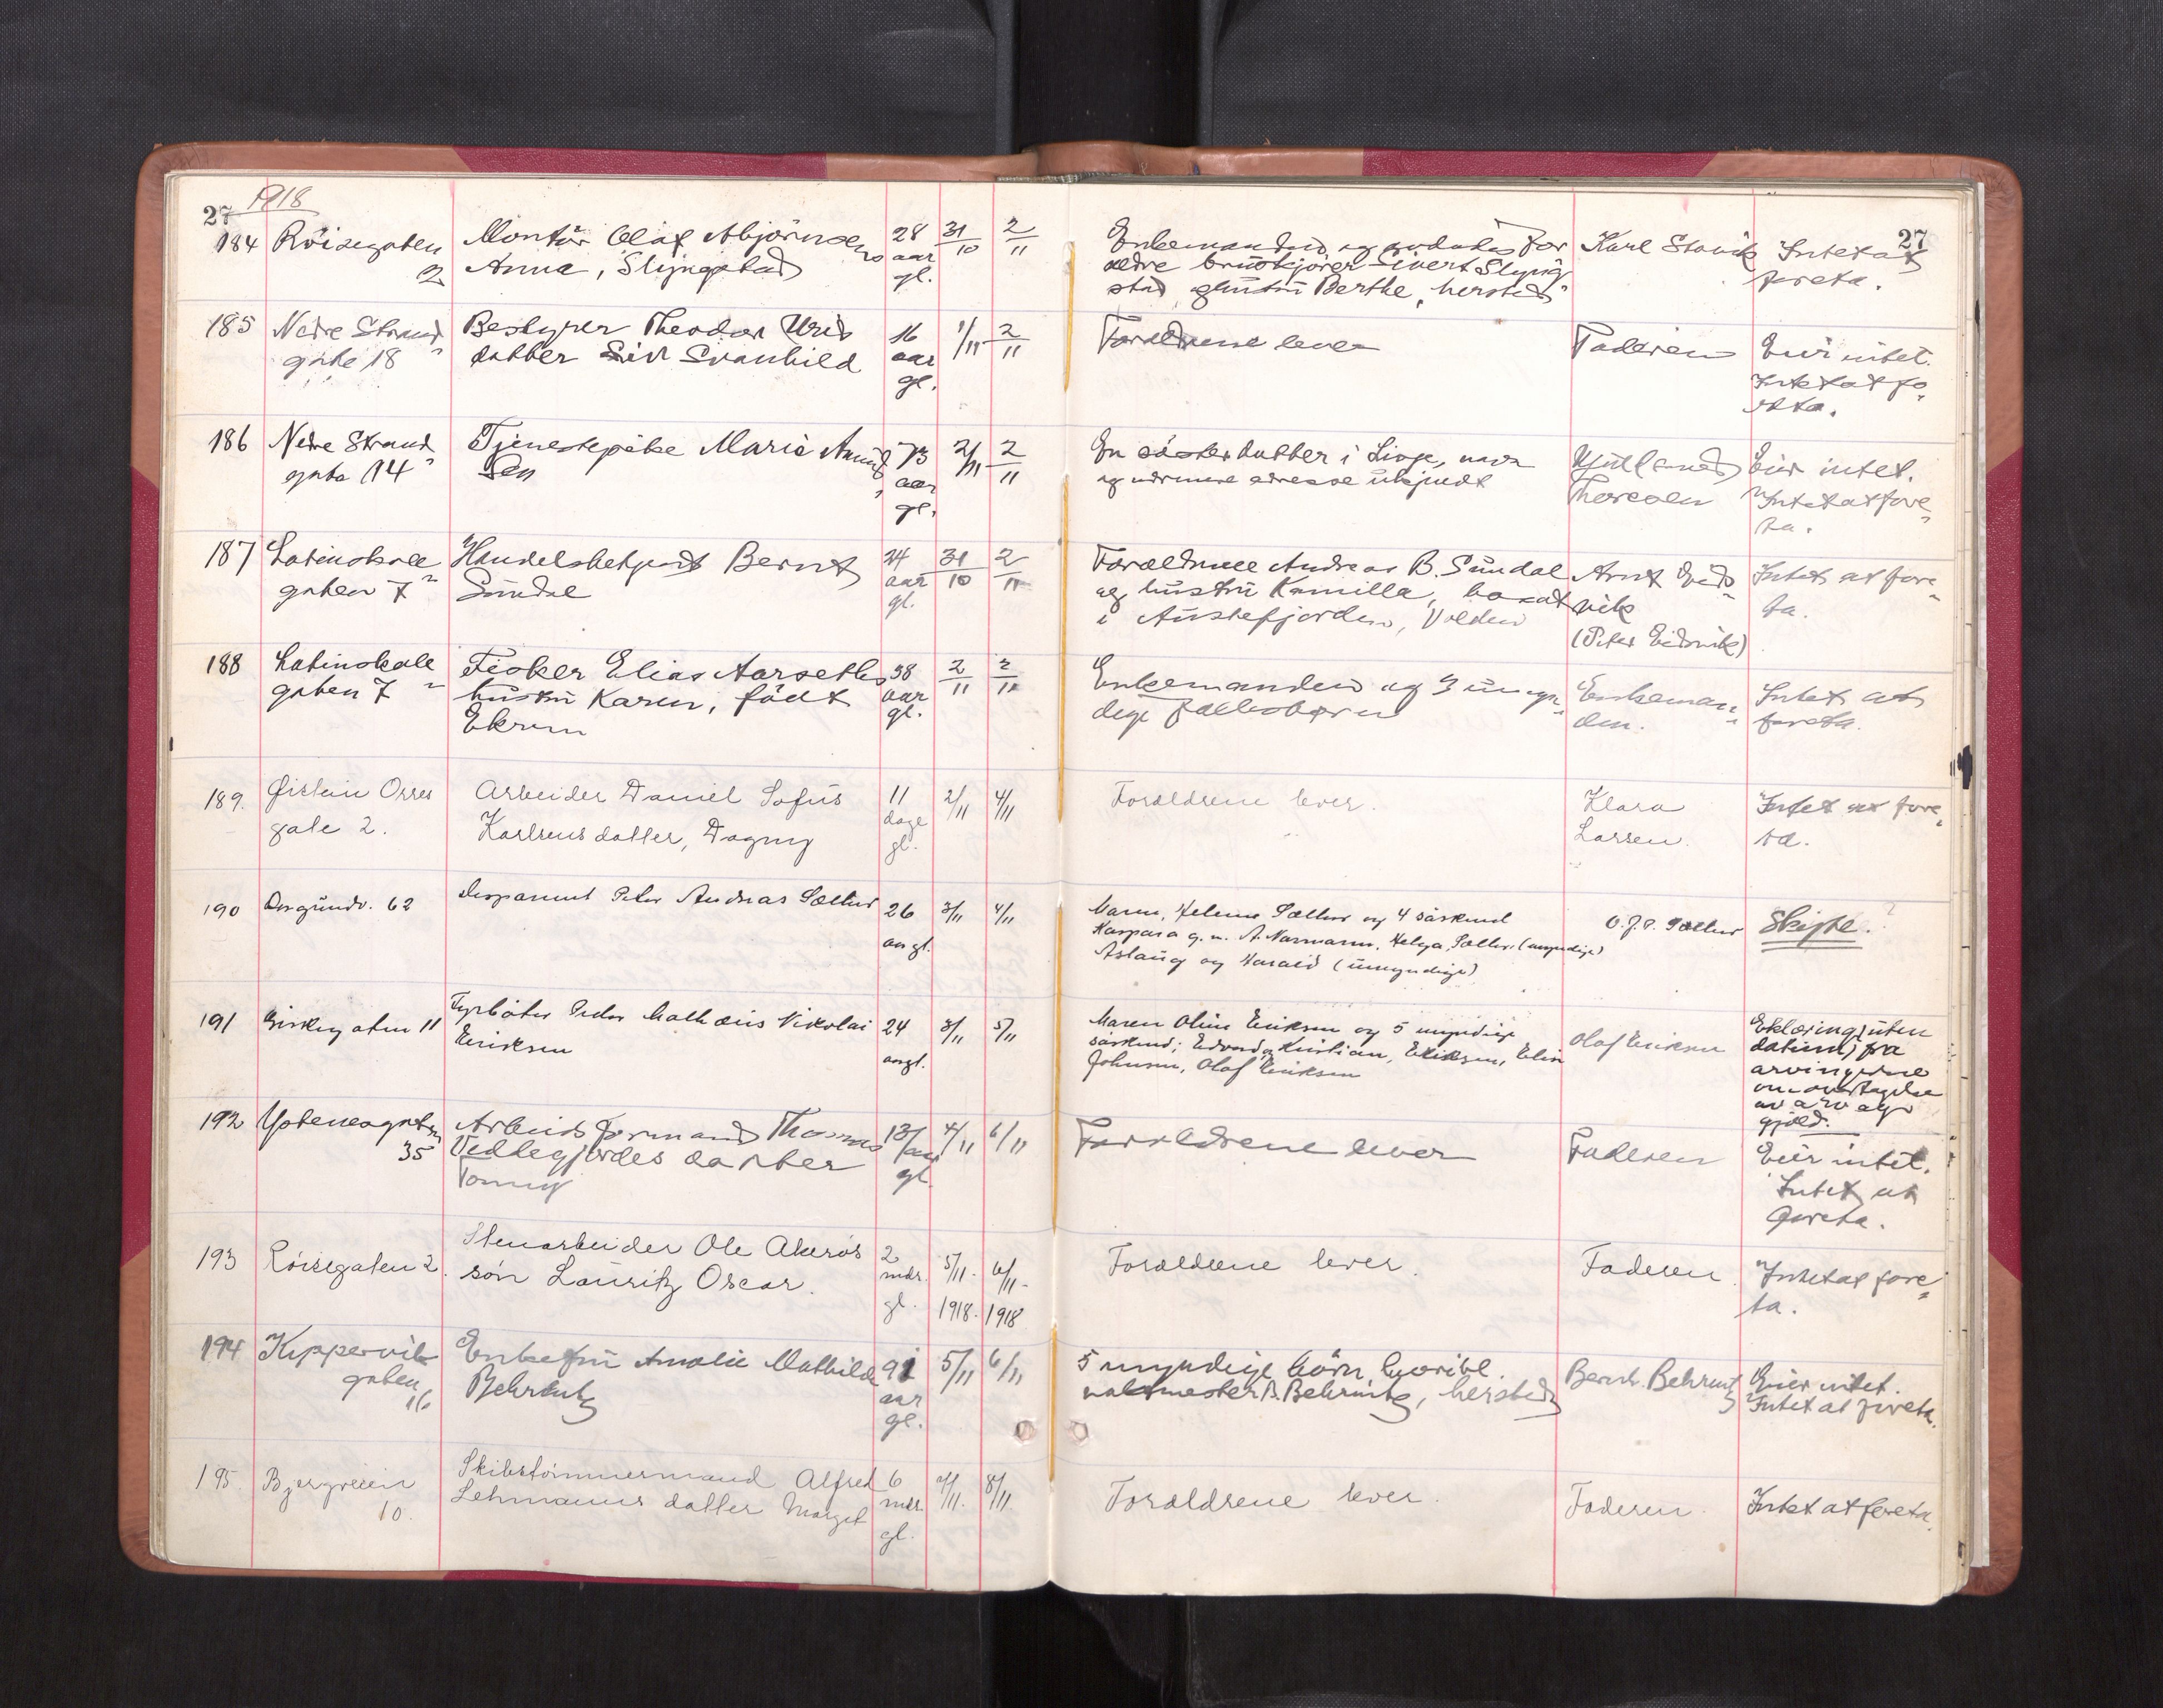 27 1918
184 Röisegaten Montör Olaf Abjörnsens 28 31/10 2/11
2 Anna, Slyngstad aar
gl.
185 Nedre Strand Bestyrer Theodor Urid 16 1/11 2/11
gate 18 datter Siv Svanhild aar
gl.
186 Nedre Strand Tjenestepike Marie Amund 73 2/11 2/11
gate 14 sen aar
gl.
187 Latinskole Handelsbetjent Bernt 24 31/10 2/11
gaten 7 Sundal aar
gl.
188 Latinskole Fisker Elias Aarseths 38 2/11 2/11
gaten 7 hustru Karen, födt aar
Ekrem gl.
189. Øistein Orres Arbeider Daniel Sofus 11 2/11 4/11
gate 2. Karlsens datter, Dagny dage
gl.
190 62 Peter Andreas Sætter 26 3/11 4/11
aar gl.
191 11 Fyrböter Peder Mathæus Nikolai 24 3/11 5/11
Eriksen aar gl.
192 Arbeidsformand Thomas 13 4/11 6/11
35 datter aar
Tonny gl.
193 Röisegaten 2. Stenarbeider Ole Akerös 2 5/11. 6/11.
sön Lauritz Oscar. mdr.
gl. 1918. 1918
194 Kippervik Enkefru Amalie Mathilde 91 5/11 6/11
gaten Behrentz aar
16 gl.
195. Bjergveien Skibstömmermand Alfred 6 7/11. 8/11.
10. Lehmanns datter Margit mdr.
gl.
27
Enkemanden og avdødes for Karl Stavik Intet at
ældre Sivert Slyng foreta.
stad hustru Berthe, hersteds
Forældrene lever Faderen Eier intet.
Intet at fo
reta.
En sösterdatter i Linge, navn Eier intet.
og nærmere adresse ukjendt Thoresen Intet at fore
ta.
Forældrene Andreas B. Sundal Arnt Eids Intet at fore
og hustru Kamilla, bosat vik ta.
i Austefjorden, Volden (Peter Eidsvik)
Enkemanden og 3 umyn Enkeman Intet at
dige fællesbørn den. foreta.
Forældrene lever. Klara Intet at fore
Larsen. ta.
Helene Sætter og 4 söskend O. J. P. Sætter Skifte. ?
Kaspara g. m. A. Normann, Helga Sætter (umyndige)
Aslaug og Harald (umyndige)
Maren Oline Eriksen og 5 myndige Olaf Eriksen Erklæring (uten
söskend; Edvard, Kristian, Eriksen, Elin datum) fra
Johnsen, Olaf Eriksen arvingerne
om overtagelse
av arv og
gjæld.
Forældrene lever Faderen Eier intet.
Intet at
foreta.
Forældrene lever. Faderen. Intet at fore
ta.
5 myndige börn hvoribl. Bernh. Behrentz Eier intet.
B. Behrentz, hersteds Intet at foreta.
Forældrene lever. Faderen. Intet at foreta.